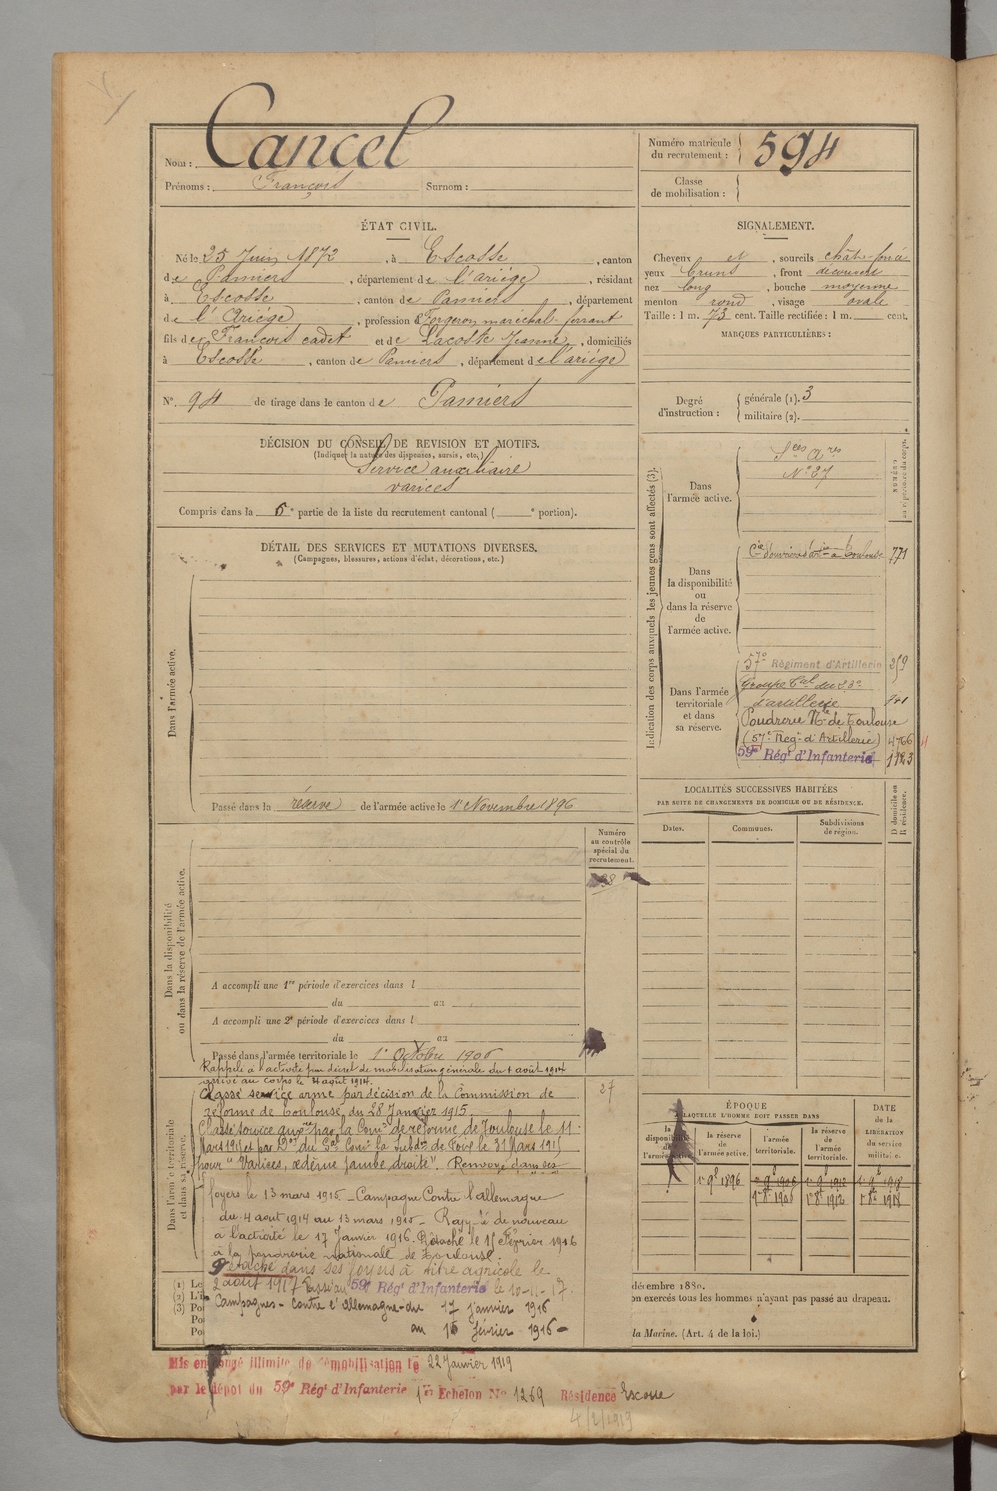 Nom : Cancel
Prénoms : François Surnom :
Numéro matricule du recrutement : 594
Classe de mobilisation :
ÉTAT CIVIL.
Né le 25 Juin 1872, à Escosse, canton
de Pamiers, département de l'ariége, résidant
à Escosse, canton de Pamiers, département
de l'Ariége, profession d Forgeron maréchal-ferrant
fils de François cadet et de Lacoste Jeanne, domiciliés
à Escosse, canton de Pamiers, département de l'ariége
N° 94 de tirage dans le canton de Pamiers
SIGNALEMENT.
Cheveux et, sourcils chât-foncé
yeux bruns, front découvert
nez long, bouche moyenne
menton rond, visage ovale
Taille : 1 m. 73 cent. Taille rectifiée : 1 m. cent.
MARQUES PARTICULIÈRES :
Degré d'instruction :
générale (1). 3
militaire (2).
DÉCISION DU CONSEIL DE REVISION ET MOTIFS.
(Indiquer la nature des dispenses, sursis, etc.)
Service auxiliaire
varices
Compris dans la 5e partie de la liste du recrutement cantonal ( e portion).
DÉTAIL DES SERVICES ET MUTATIONS DIVERSES.
(Campagnes, blessures, actions d'éclat, décorations, etc.)
Dans l'armée active.
Passé dans la réserve de l'armée active le 1er Novembre 1896
Indication des corps auxquels les jeunes gens sont affectés (3).
NUMÉRO au répertoire du corps.
Dans l'armée active.
Sces Ares
N° 27
Dans la disponibilité ou dans la réserve de l'armée active.
Cie d'ouvriers d'arie à Toulouse 771
Dans l'armée territoriale et dans sa réserve.
57e Régiment d'Artillerie 259
Groupe Tal du 23e
d'artillerie 741
Poudrerie Nle de Toulouse
(57e Regt d'Artillerie) 4766
59e Régt d'Infanterie 1723
LOCALITÉS SUCCESSIVES HABITÉES
PAR SUITE DE CHANGEMENTS DE DOMICILE OU DE RÉSIDENCE.
Dates. Communes. Subdivisions de région. D domicile ou R résidence.
Numéro au contrôle spécial du recrutement.
Dans la disponibilité ou dans la réserve de l'armée active.
A accompli une 1re période d'exercices dans l
du au
A accompli une 2e période d'exercices dans l
du au
Passé dans l'armée territoriale le 1er Octobre 1906
Rappelé à l'activité par décret de mobilisation générale du 1 août 1914
arrivé au corps le 4 août 1914.
27
Dans l'armée territoriale et dans sa réserve.
Classé service armé par décision de la Commission de
réforme de Toulouse, du 28 Janvier 1915.
Classé service auxre par la Comon de réforme de Toulouse le 11
Mars 1915
pour "Varices, œdème jambe droite". Renvoyé dans ses
foyers le 13 mars 1915. - Campagne Contre l'allemagne
du 4 août 1914 au 13 mars 1915 - Rappelé de nouveau
à l'activité le 17 Janvier 1916. Détaché le 15 Février 1916
à la poudrerie nationale de Toulouse.
Détaché dans ses foyers à titre agricole le
2 août 1917 Passé au 59e Régt d'Infanterie le 10-11-17.
Campagnes - Contre l'allemagne - du 17 janvier 1916
au 15 février 1916 -
ÉPOQUE
A LAQUELLE L'HOMME DOIT PASSER DANS
la disponibilité de l'armée active. la réserve de l'armée active. l'armée territoriale. la réserve de l'armée territoriale.
DATE de la LIBÉRATION du service militaire.
1er 9e 1896 1er 9e 1906 1er 9e 1912 1er 9e 1918
1er 8e 1906 1er 8e 1912 1er 8e 1918
(1) Le
(2) L'i
(3) Po
Po
Po
décembre 1880.
on exercés tous les hommes n'ayant pas passé au drapeau.
la Marine. (Art. 4 de la loi.)
Mis en congé illimité de démobilisation le 22 Janvier 1919
par le dépôt du 59e Régt d'Infanterie 1er Echelon No 1269 Résidence Escosse
4/2/1919